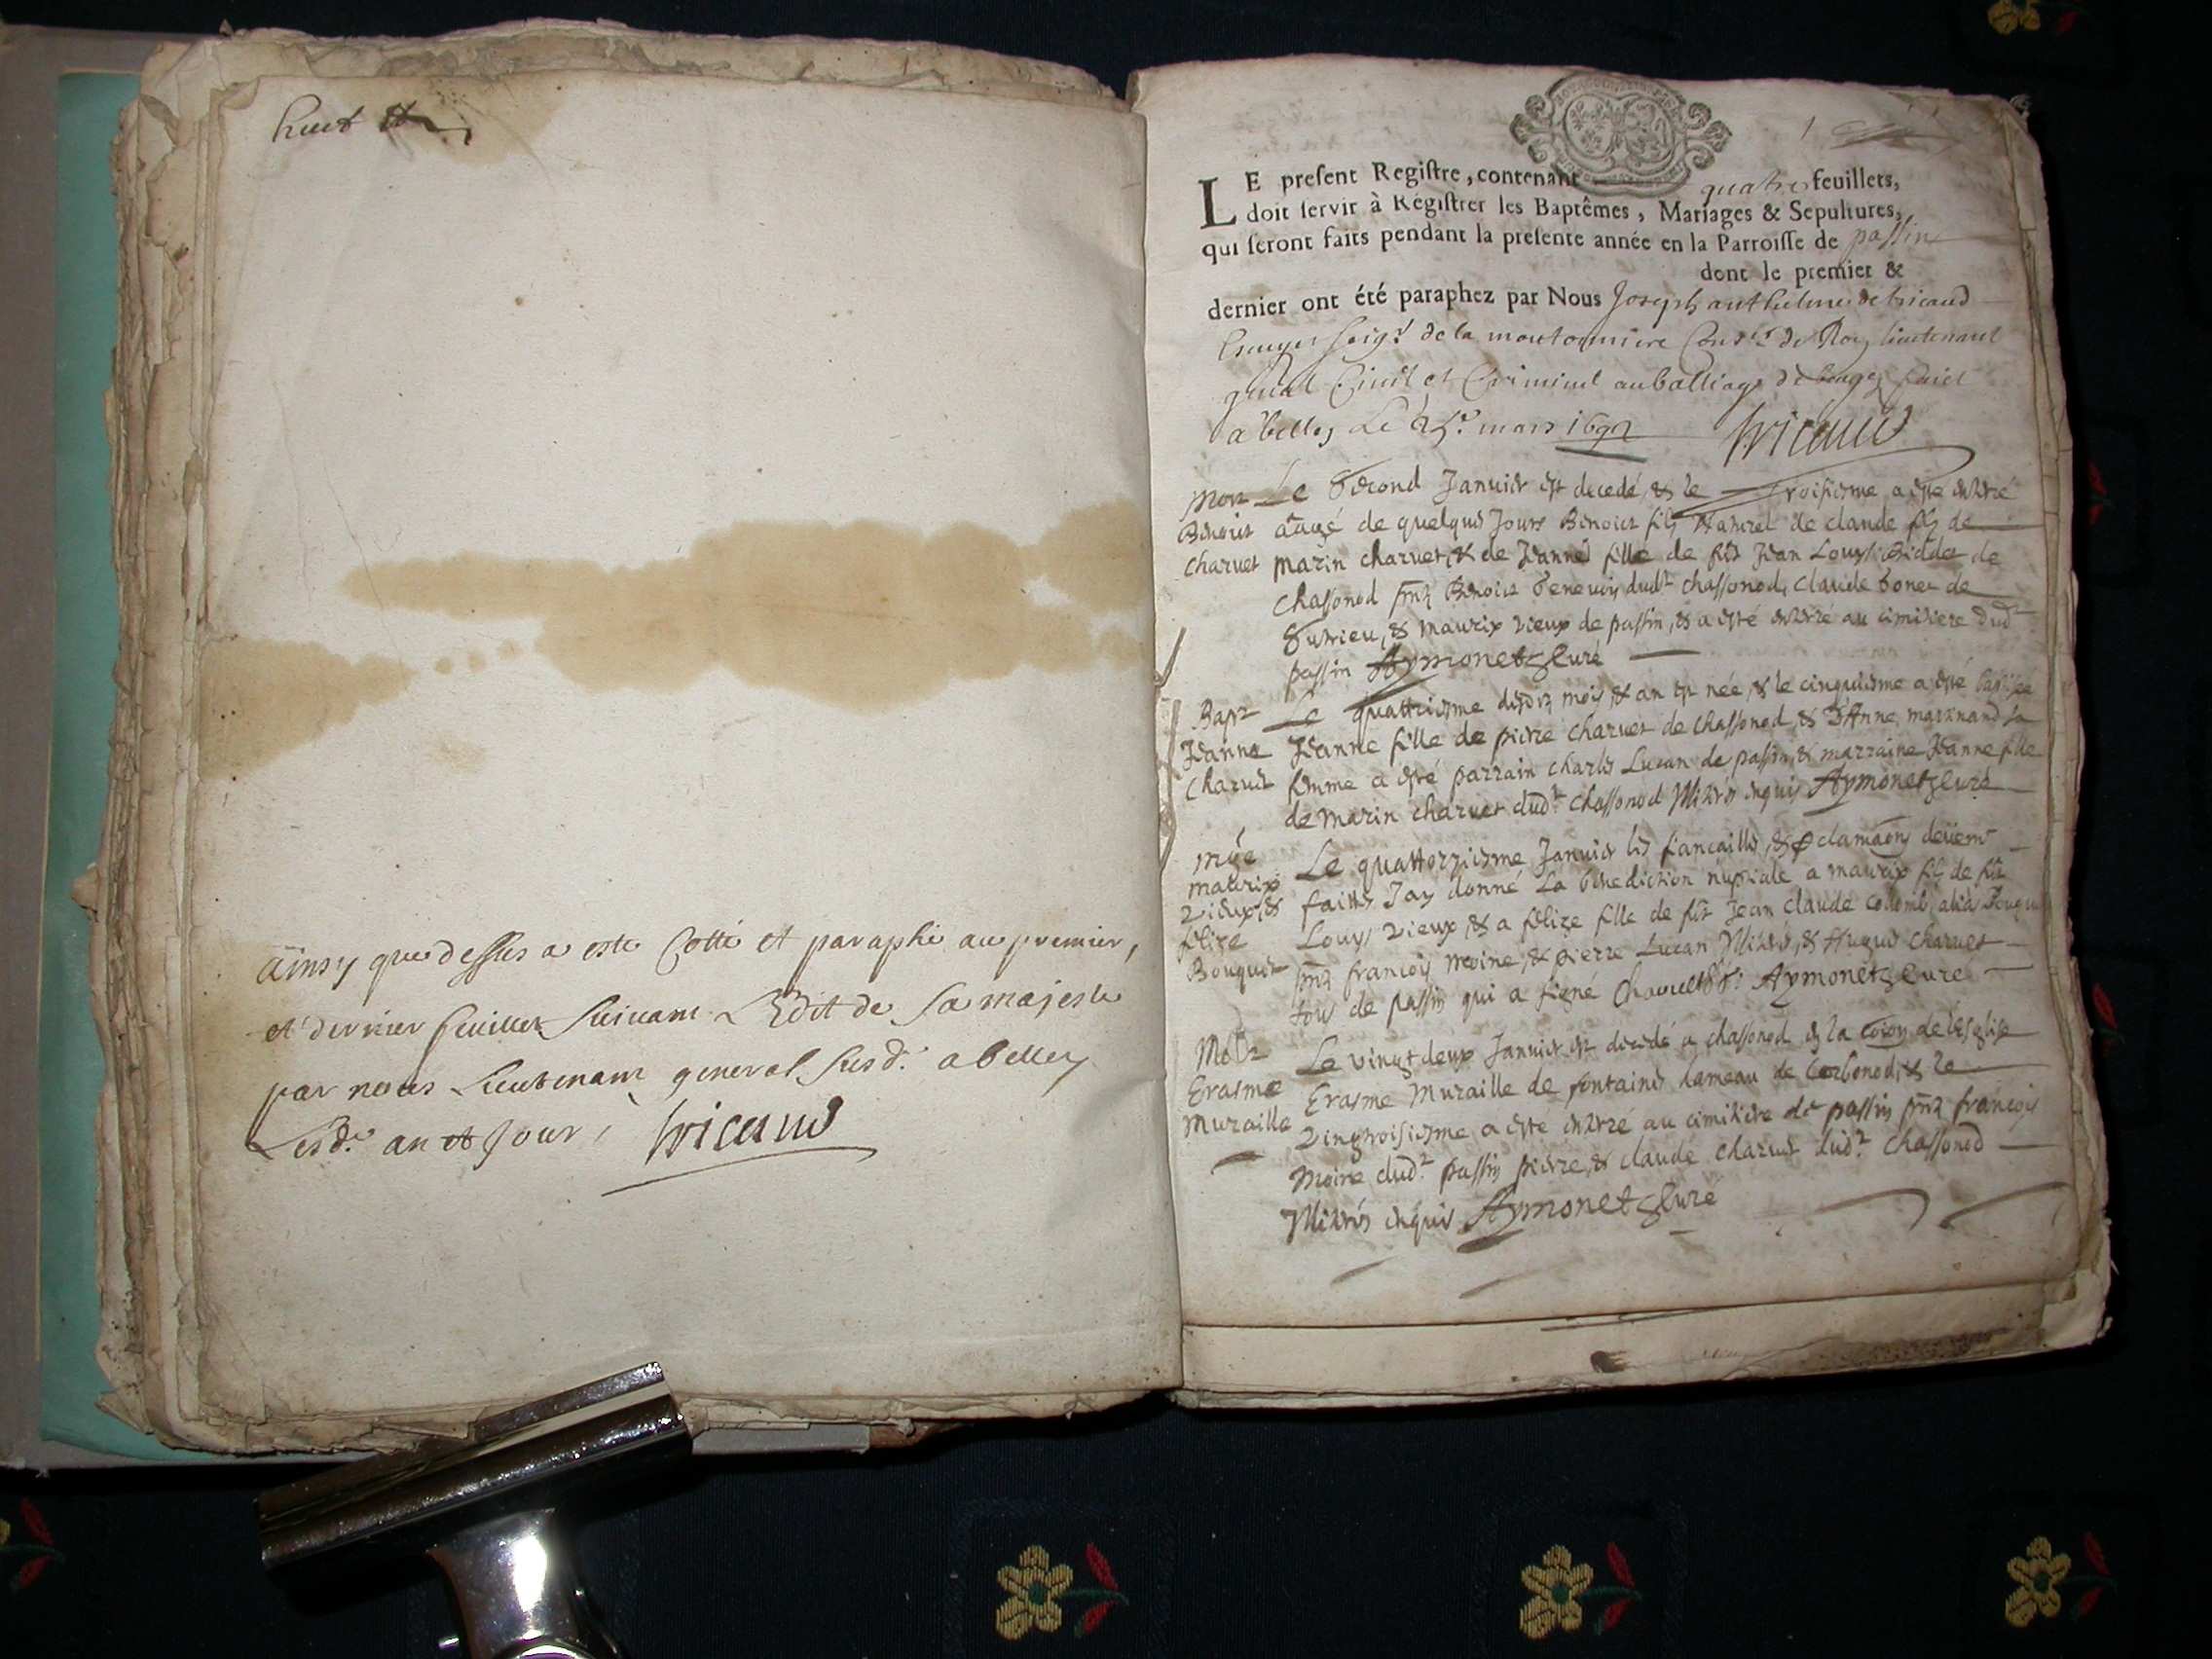 huit
ainsy que dessus a esté Cotté et paraphé au premier,
et dernier feuillet suivant L'Edit de sa majesté
par nous Lieutenant general susd. a belley
Lesd. an et Jour, Tricaud
LE preſent Regiſtre, contenant quatre feuillets,
doit ſervir à Régiſtrer les Baptêmes, Mariages & Sepultures,
qui ſeront faits pendant la preſente année en la Parroiſſe de passin
dont le premier &
dernier ont été paraphez par Nous Joseph anthelme de tricaud
Escuyer seigr de la moutonniere Consr du Roy lieutenant
gnal Civil et Criminel au balliage de bugey faict
a belley Le mars 1692 Tricaud
Mort Le second Janvier est decedé, & le troisiesme a esté enterré
Benoit aagé de quelques Jours Benoict fils Naturel de claude fils de
charvet marin charvet, & de Jeanne fille de Jean Louys de
chassonod Benoict dudt chassonod, claude bonet de
Sutrieu, & maurix vieux de passin, & a esté enterré au cimitiere dudt
passin Aymonet Curé
Bapt Le quattriesme mois & an est née, & le cinquiesme a esté baptisée
Jeanne Jeanne fille de pierre charvet de chassonod, & d'Anne martinand sa
charvet femme a esté parrain charles Lucan de passin, & marraine Jeanne fille
de marin charvet dudt chassonod Illitérés enquis Aymonet Curé
mge Le quattorziesme Janvier les fiancailles, & deüemt
maurix faittes Jay donné La benediction nuptiale a maurix fils de
vieux, & Louys vieux, & a felize fille de Jean claude collomb alias Bouquet
felize francois moine, & pierre Lucan Illitérés, & charvet
Bouquet tous de passin qui a signé Aymonet Curé
Mort Le vingt deux Janvier est decedé a chassonod en la de l'esglise
Erasme Erasme Muraille de fontaines hameau de Corbonod, & le
Muraille vingtroisiesme a esté enterré au cimitiere de passin francois
moine dudt passin pierre, & claude charvet dudt chassonod
Illitérés enquis Aymonet Curé